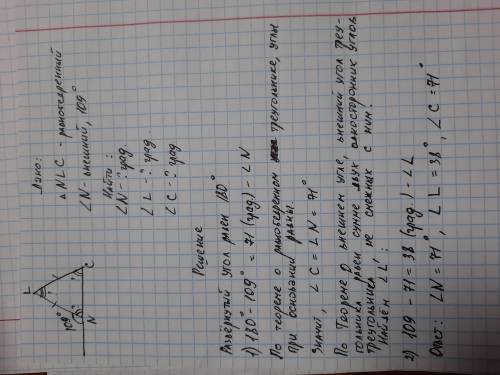 Дано:
△ NLC - равнобедренный
∠N - внешний, 109°
Найти:
∠N - ? град.
∠L - ? град.
∠C - ? град
L
109°
N
C
Решение
Развёрнутый угол равен 180°
1) 180° - 109° = 71 (град) - ∠N
По теореме о равнобедренном треугольнике, углы
при основании равны.
Значит, ∠C = ∠N = 71°
По Теореме о внешнем угле, внешний угол треу-
гольника равен сумме двух односторонних углов
треугольника, не смежных с ним.
Найдём ∠L:
2) 109 - 71 = 38 (град.) - ∠L
Ответ: ∠N = 71°, ∠L = 38°, ∠C = 71°